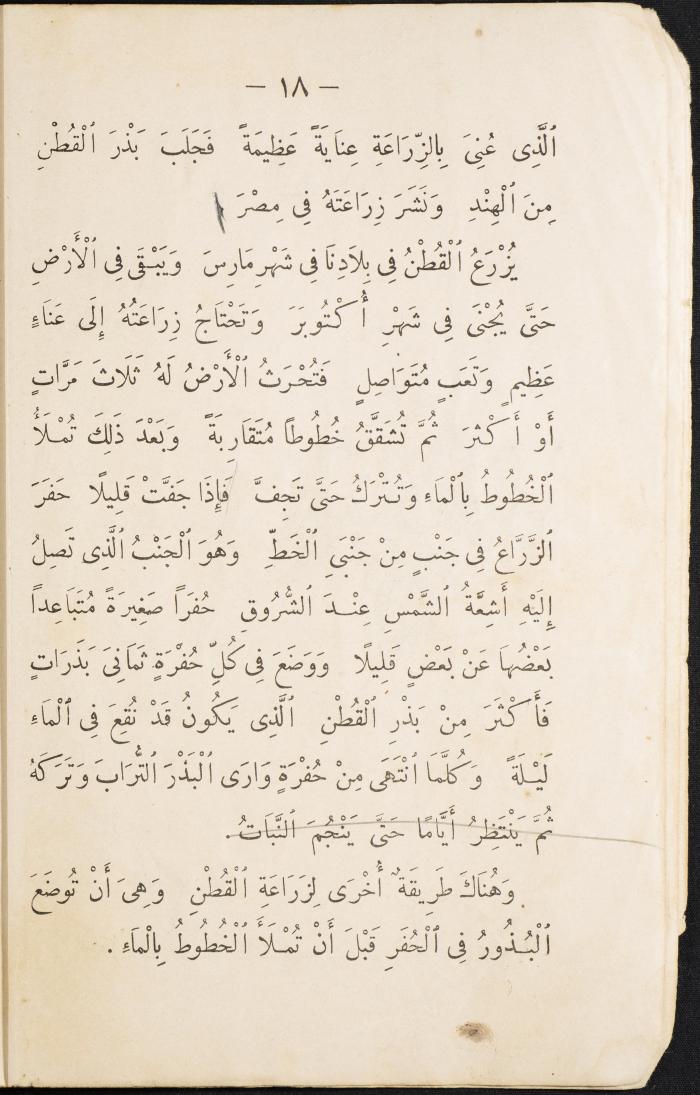 – ١٨ –
ٱلَّذِى عُنِىَ بِالزِّرَاعَةِ عِنَايَةً عَظِيمَةً فَجَلَبَ بَذْرَ ٱلْقُطْنِ
مِنَ ٱلْهِنْدِ وَنَشَرَ زِرَاعَتَهُ فِى مِصْرَ
يُزْرَعُ ٱلْقُطْنُ فِى بِلَادِنَا فِى شَهْرِ مَارِسَ وَيَبْقَى فِى ٱلْأَرْضِ
حَتَّى يُجْنَى فِى شَهْرِ أُكْتُوبَرَ وَتَحْتَاجُ زِرَاعَتُهُ إِلَى عَنَاءٍ
عَظِيمٍ وَتَعَبٍ مُتَوَاصِلٍ فَتُحْرَثُ ٱلْأَرْضُ لَهُ ثَلَاثَ مَرَّاتٍ
أَوْ أَكْثَرَ ثُمَّ تُشَقَّقُ خُطُوطاً مُتَقَارِبَةً وَبَعْدَ ذَلِكَ تُمْلَأُ
ٱلْخُطُوطُ بِٱلْمَاءِ وَتُتْرَكُ حَتَّى تَجِفَّ فَإِذَا جَفَّتْ قَلِيلًا حَفَرَ
ٱلزَّرَّاعُ فِى جَنْبٍ مِنْ جَنْبَىِ ٱلْخَطِّ وَهُوَ ٱلْجَنْبُ ٱلَّذِى تَصِلُ
إِلَيْهِ أَشِعَّةُ ٱلشَّمْسِ عِنْدَ ٱلشُّرُوقِ حُفَراً صَغِيرَةً مُتَبَاعِداً
بَعْضُهَا عَنْ بَعْضٍ قَلِيلًا وَوَضَعَ فِى كُلِّ حُفْرَةٍ ثَمَانِىَ بَذَرَاتٍ
فَأَكْثَرَ مِنْ بَذْرِ ٱلْقُطْنِ ٱلَّذِى يَكُونُ قَدْ نُقِعَ فِى ٱلْمَاءِ
لَيْلَةً وَكُلَّمَا ٱنْتَهَى مِنْ حُفْرَةٍ وَارَى ٱلْبَذْرَ ٱلتُّرَابَ وَتَرَكَهُ
ثُمَّ يَنْتَظِرُ أَيَّامًا حَتَّى يَنْجُمَ ٱلنَّبَاتُ.
وَهُنَاكَ طَرِيقَةٌ أُخْرَى لِزَرَاعَةِ ٱلْقُطْنِ وَهِىَ أَنْ تُوضَعَ
ٱلْبُذُورُ فِى ٱلْحُفَرِ قَبْلَ أَنْ تُمْلَأَ ٱلْخُطُوطُ بِٱلْمَاءِ.